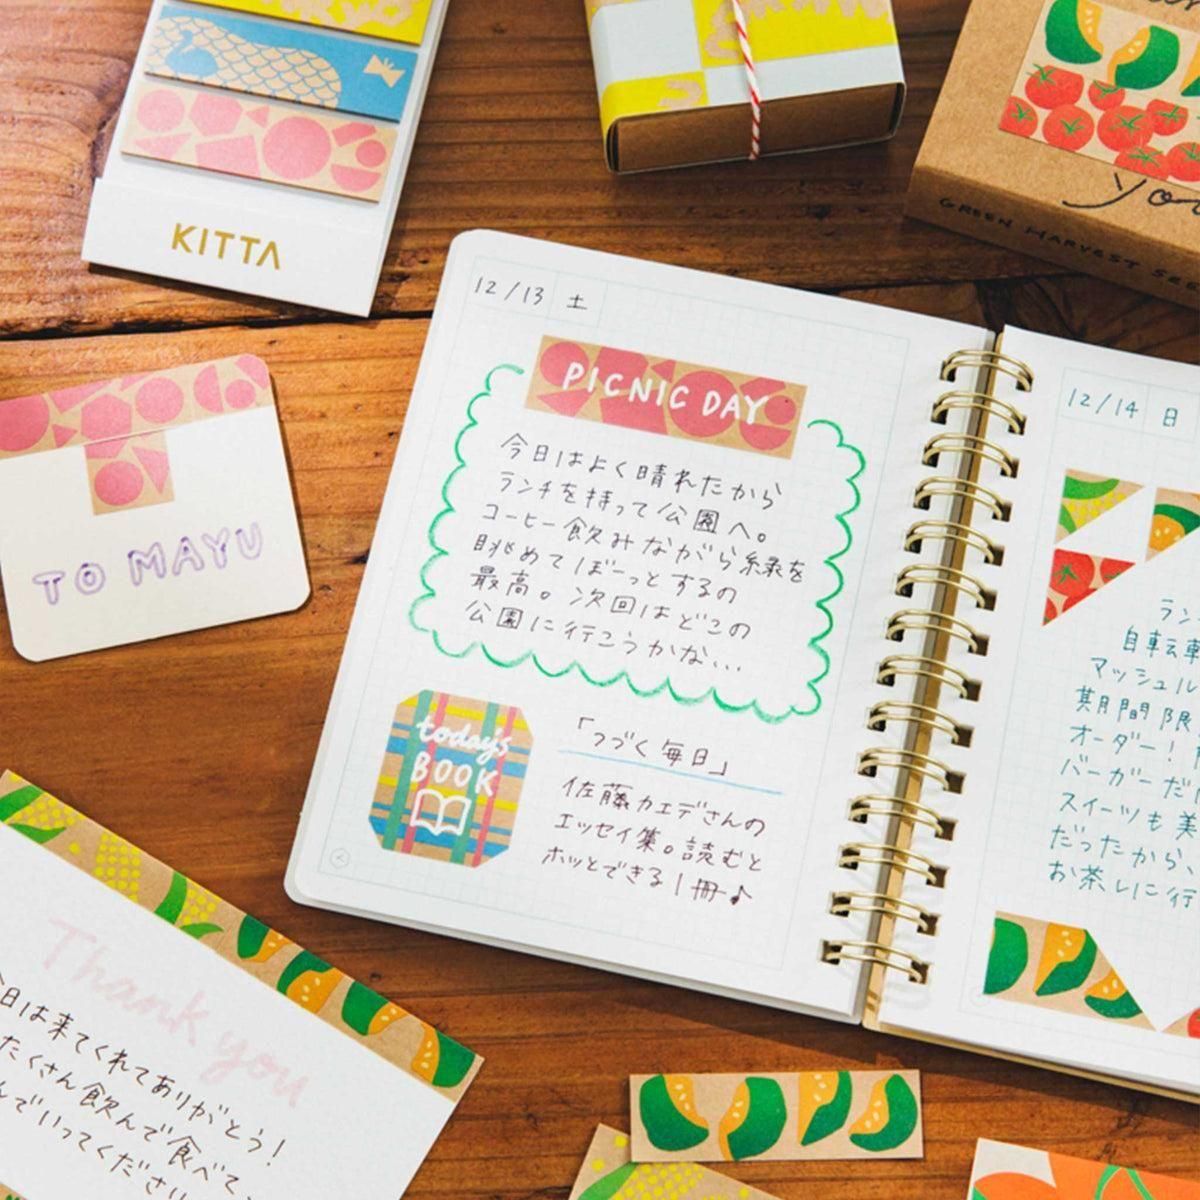 KITTA
you
GREEN HARVEST SEE
TO MAYU
12/13 土
PICNIC DAY
今日はよく晴れたから
ランチを持って公園へ。
コーヒー飲みながら緑を
眺めてぼーっとするの
最高。次回はどこの
公園に行こうかな...
today's
BOOK
「つづく毎日」
佐藤カエデさんの
エッセイ集。読むと
ホッとできる1冊♪
12/14 日
ラン
自転車
マッシュル
期間限
オーダー!
バーガーだ
スイーツも美
だったから、
お茶しに行
Thank you
今日は来てくれてありがとう!
たくさん飲んで食べて、
んでいってください